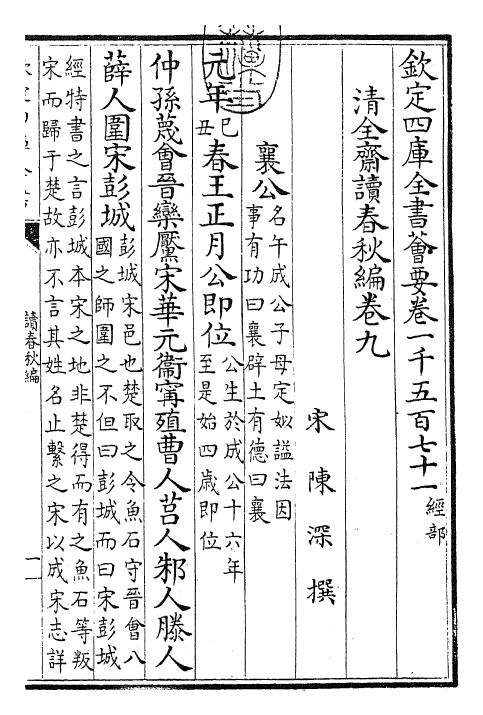 欽定四庫全書薈要卷一千五百七十一經部
清全齋讀春秋編卷九
宋陳深撰
襄公名午成公子母定姒諡法因事有功曰襄辟土有德曰襄
元年己丑春王正月公即位公生於成公十六年至是始四歲即位
仲孫蔑會晉欒黶宋華元衞甯殖曹人莒人邾人滕人
薛人圍宋彭城彭城宋邑也楚取之令魚石守晉會八國之師圍之不但曰彭城而曰宋彭城
經特書之言彭城本宋之地非楚得而有之魚石等叛宋而歸于楚故亦不言其姓名止繫之宋以成宋志詳
讀春秋編
一